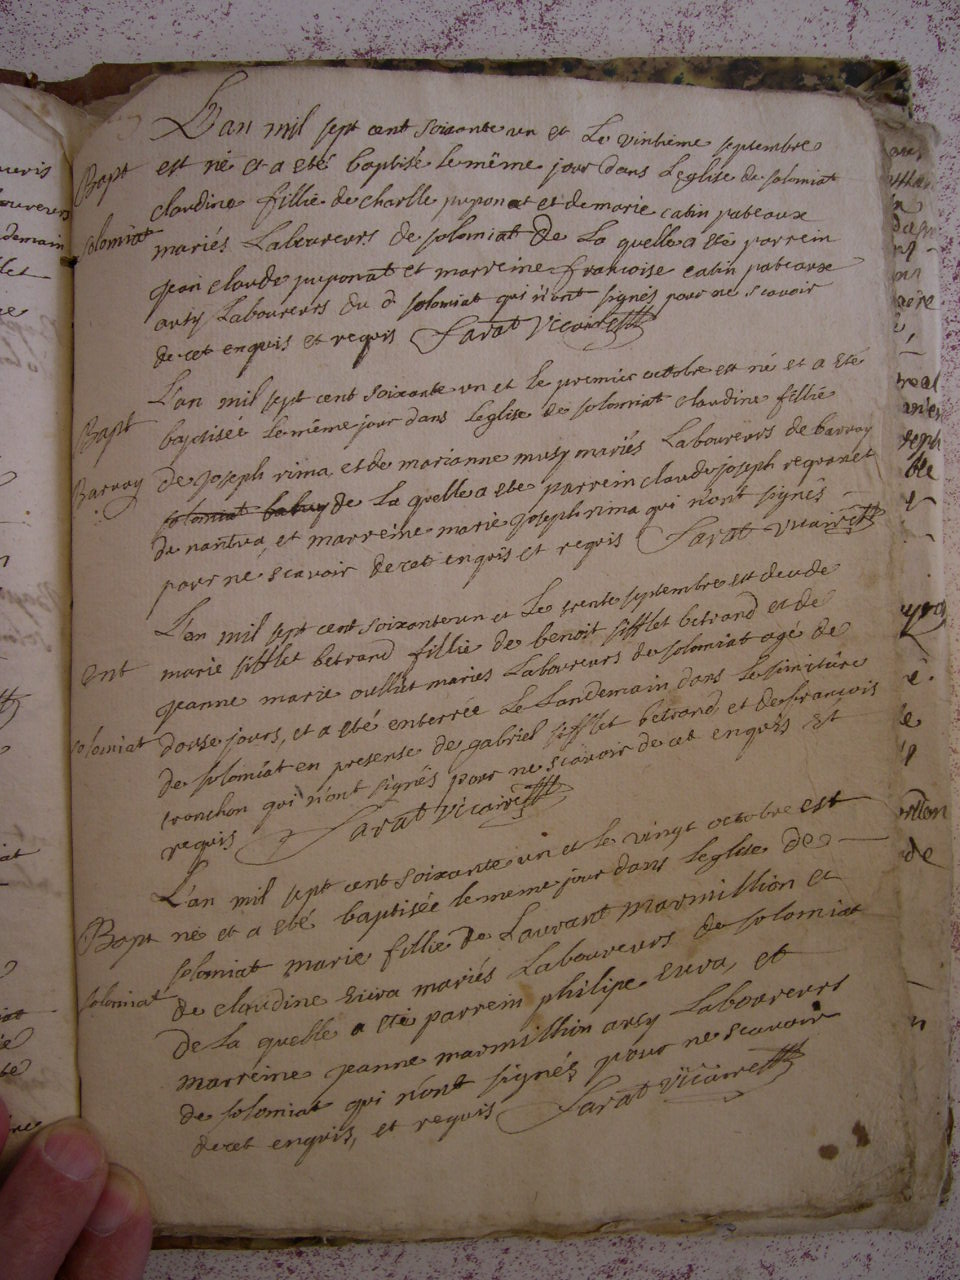 L'an mil sept cent soixante un et Le vintieme septembre
Bapt est né et a eté baptisée le même jour dans Leglise de solomiat
claudine fillie de charlle puponat et de marie catin pateaux
solomiat mariés Laboureurs de solomiat De La quelle a eté parrein
jean claude puponat et marreine francoise catin pateaux
aussy Laboureurs du d solomiat qui n'ont signés pour ne scavoir
de cet enquis et requis Sarat Vicaire
L'an mil sept cent soixante un et le premier octobre est né et a eté
Bapt baptisée le même jour dans leglise de solomiat claudine fillie
Barvay de joseph rima et de marianne musy mariés Laboureurs de barvay
solomiat de La quelle a eté parrein claude joseph regranet
de nantua, et marreine marie joseph rima qui n'ont signés
pour ne scavoir de cet enquis et requis Sarat Vicaire
L'an mil sept cent soixante un et Le trente septembre est decede
Ent marie sifflet betrand fillie de benoit sifflet betrand et de
jeanne marie oulliat mariés Laboureurs de solomiat agé de
solomiat douse jours, et a eté enterrée Le Landemain dans Le simitiere
de solomiat en presense de gabriel sifflet betrand et de francois
tronchon qui n'ont signés pour ne scavoir de cet enquis et
requis Sarat Vicaire
L'an mil sept cent soixante un et le vingt octobre est
Bapt né et a eté baptisée le meme jour dans leglise de
solomiat marie fillie de Laurant marmillion et
solomiat de claudine Euva mariés Laboureurs de solomiat
De La quelle a eté parrein philipe Euva, et
marreine jeanne marmillion aussy Laboureurs
de solomiat qui n'ont signés pour ne scavoir
de cet enquis, et requis Sarat Vicaire